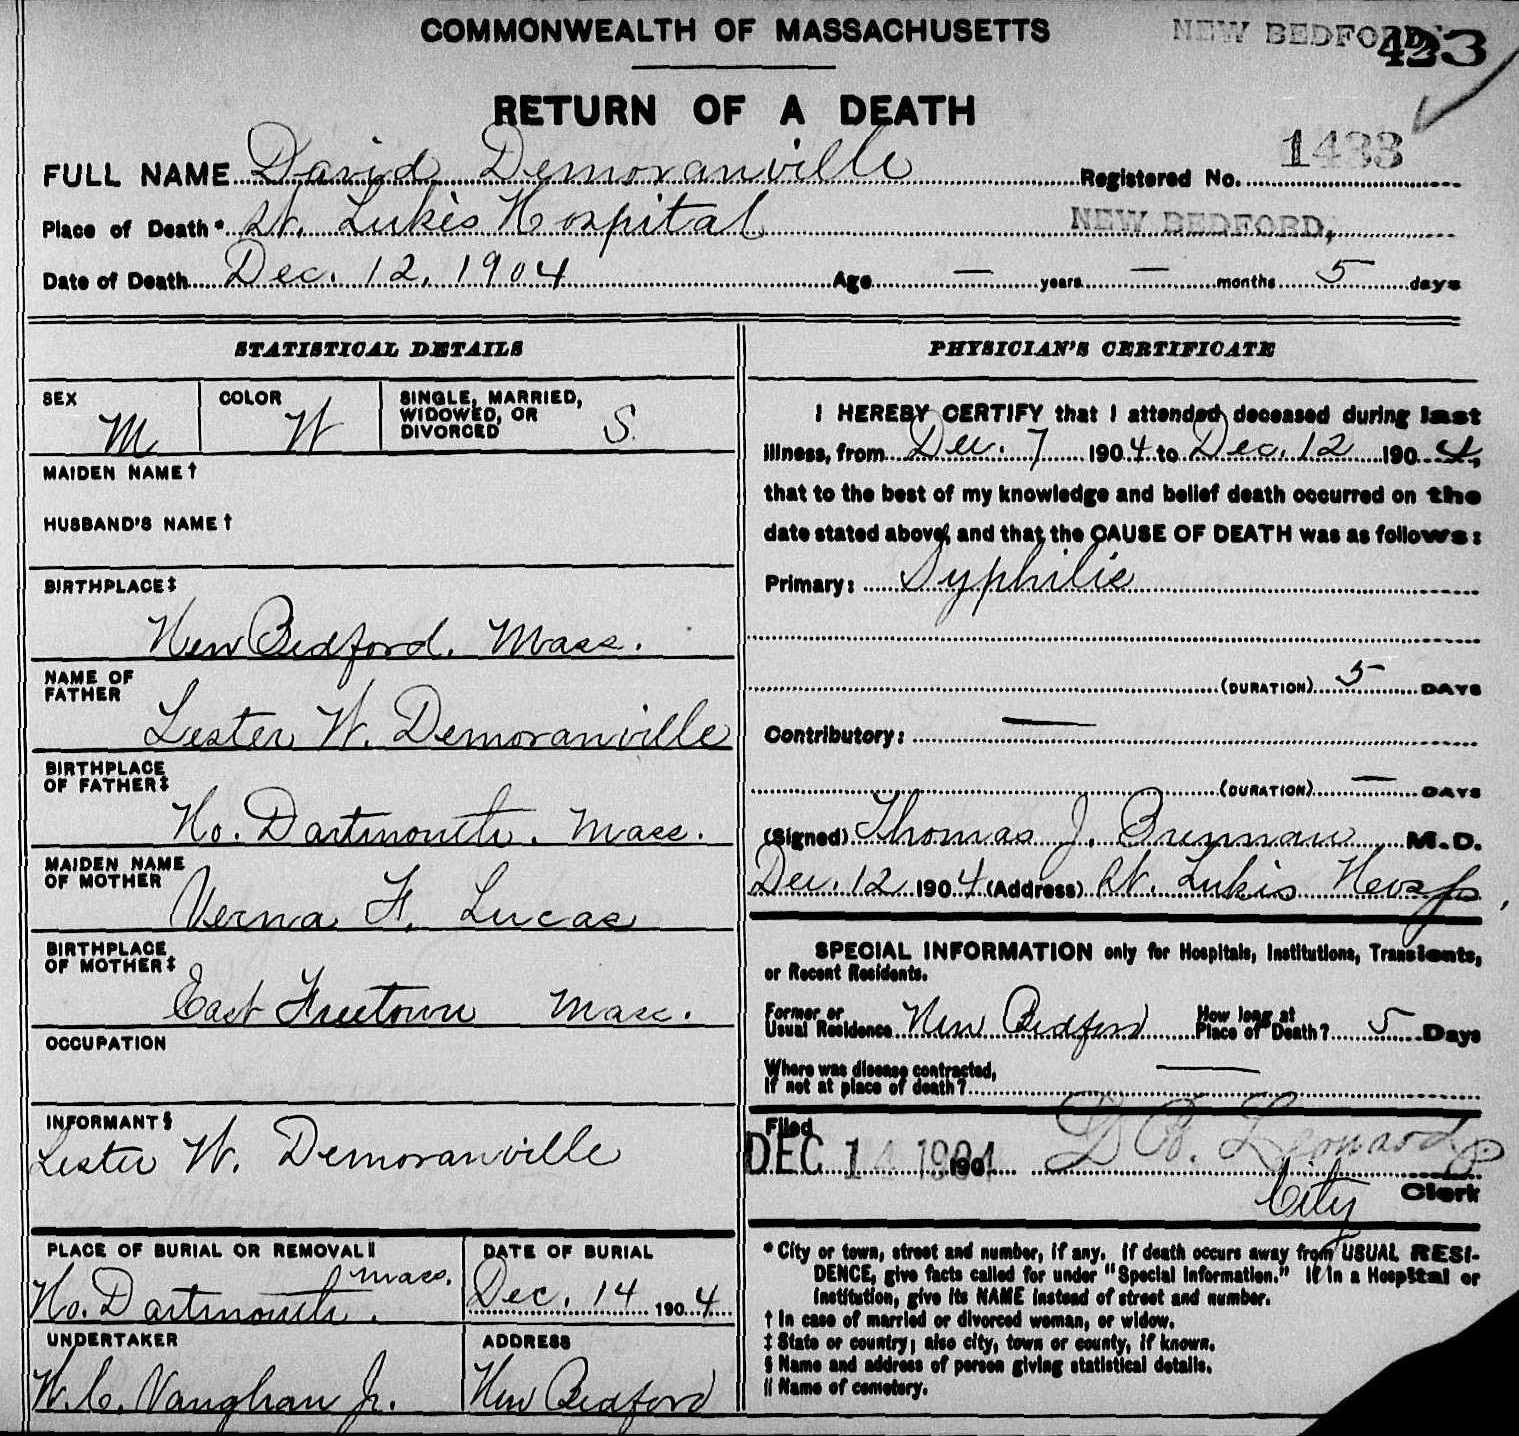 COMMONWEALTH OF MASSACHUSETTS
NEW BEDFORD,
423
RETURN OF A DEATH
FULL NAME David Demoranville Registered No. 1433
Place of Death* St. Luke's Hospital NEW BEDFORD,
Date of Death Dec. 12, 1904 Age — years — months 5 days
STATISTICAL DETAILS
SEX M COLOR W SINGLE, MARRIED, WIDOWED, OR DIVORCED S.
MAIDEN NAME †
HUSBAND'S NAME †
BIRTHPLACE ‡
New Bedford. Mass.
NAME OF FATHER
Lester W. Demoranville
BIRTHPLACE OF FATHER ‡
No. Dartmouth. Mass.
MAIDEN NAME OF MOTHER
Verna F. Lucas
BIRTHPLACE OF MOTHER ‡
East Freetown Mass.
OCCUPATION
INFORMANT §
Lester W. Demoranville
PLACE OF BURIAL OR REMOVAL ||
No. Dartmouth. Mass.
DATE OF BURIAL
Dec. 14 1904
UNDERTAKER
W. C. Vaughan Jr.
ADDRESS
New Bedford
PHYSICIAN'S CERTIFICATE
I HEREBY CERTIFY that I attended deceased during last
illness, from Dec. 7 1904 to Dec. 12 1904,
that to the best of my knowledge and belief death occurred on the
date stated above, and that the CAUSE OF DEATH was as follows:
Primary: Syphilis
(DURATION) 5 DAYS
Contributory: —
(DURATION) — DAYS
(Signed) Thomas J. Brennan M.D.
Dec. 12 1904 (Address) St. Lukis Hosp,
SPECIAL INFORMATION only for Hospitals, Institutions, Transients,
or Recent Residents.
Former or Usual Residence New Bedford How long at Place of Death? 5 Days
Where was disease contracted,
If not at place of death? —
Filed
DEC 14 1904 190 D. B. Leonard
City Clerk
* City or town, street and number, if any. If death occurs away from USUAL RESI-
DENCE, give facts called for under "Special Information." If in a Hospital or
Institution, give its NAME instead of street and number.
† In case of married or divorced woman, or widow.
‡ State or country; also city, town or county, if known.
§ Name and address of person giving statistical details.
|| Name of cemetery.